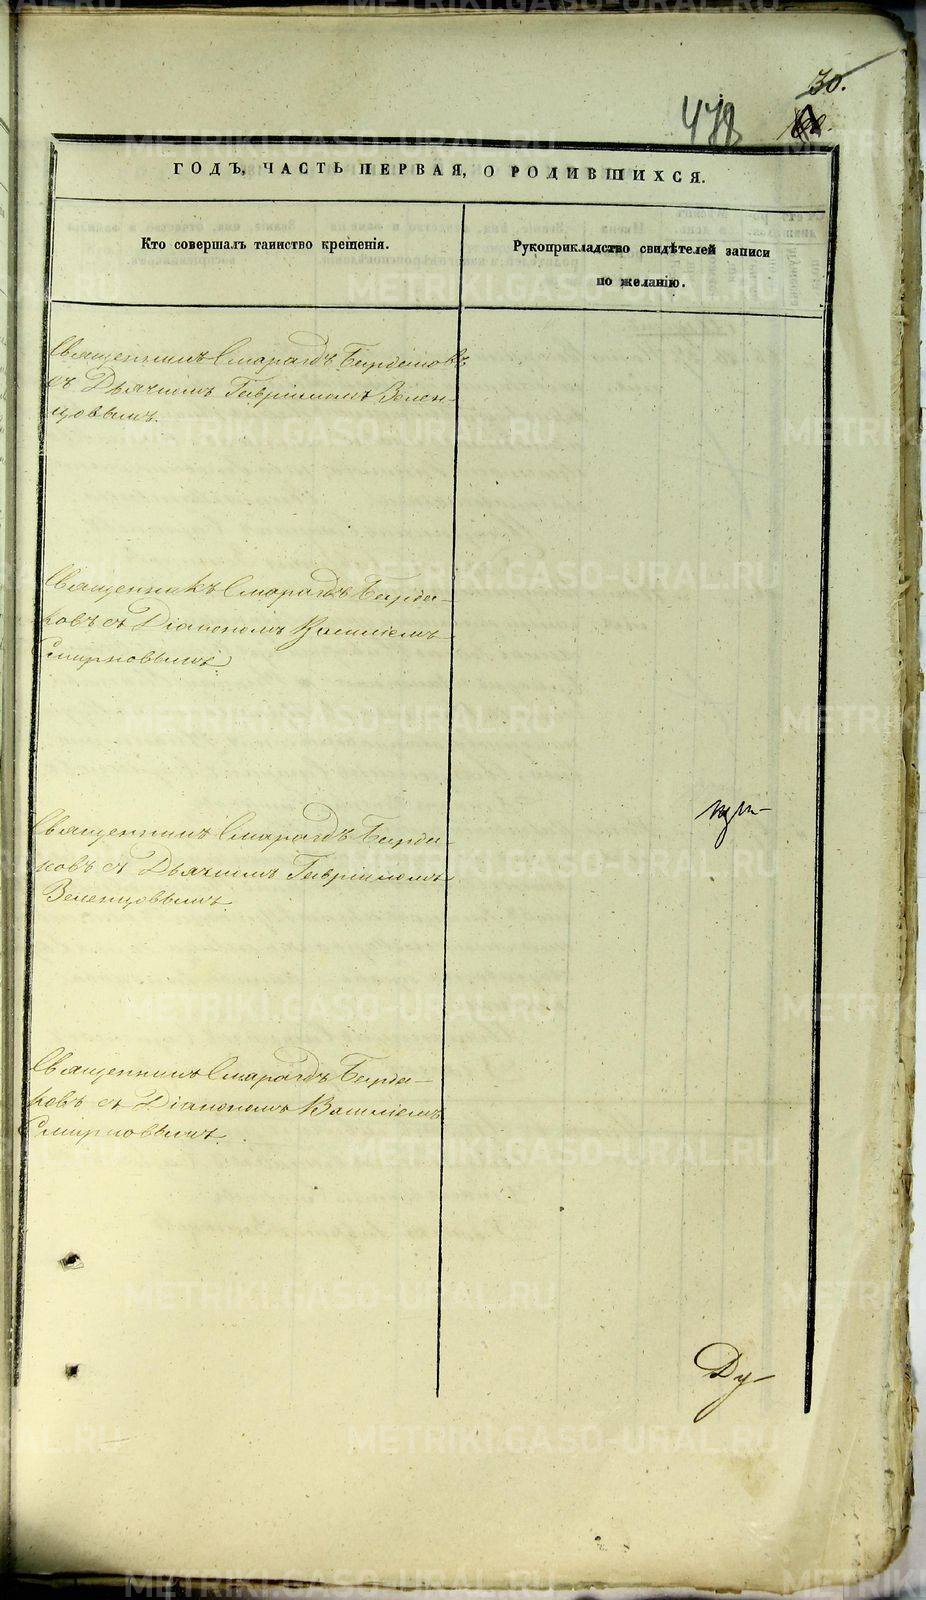 30.
478
ГОДЪ, ЧАСТЬ ПЕРВАЯ, О РОДИВШИХСЯ.
Кто совершалъ таинство крещенія.
Рукоприкладство свидѣтелей записи
по желанію.
Священникъ Смарагдъ Бирюковъ
съ Дьячкомъ Гавріиломъ Зелен-
цовымъ.
Священникъ Смарагдъ
ковъ съ Діакономъ Василіемъ
Смирновымъ.
Священникъ Смарагдъ
ковъ съ Дьячкомъ Гавріиломъ
Зеленцовымъ.
Священникъ Смарагдъ
ковъ съ Діакономъ Василіемъ
Смирновымъ.
Ду-
METRIKI.GASO-URAL.RU